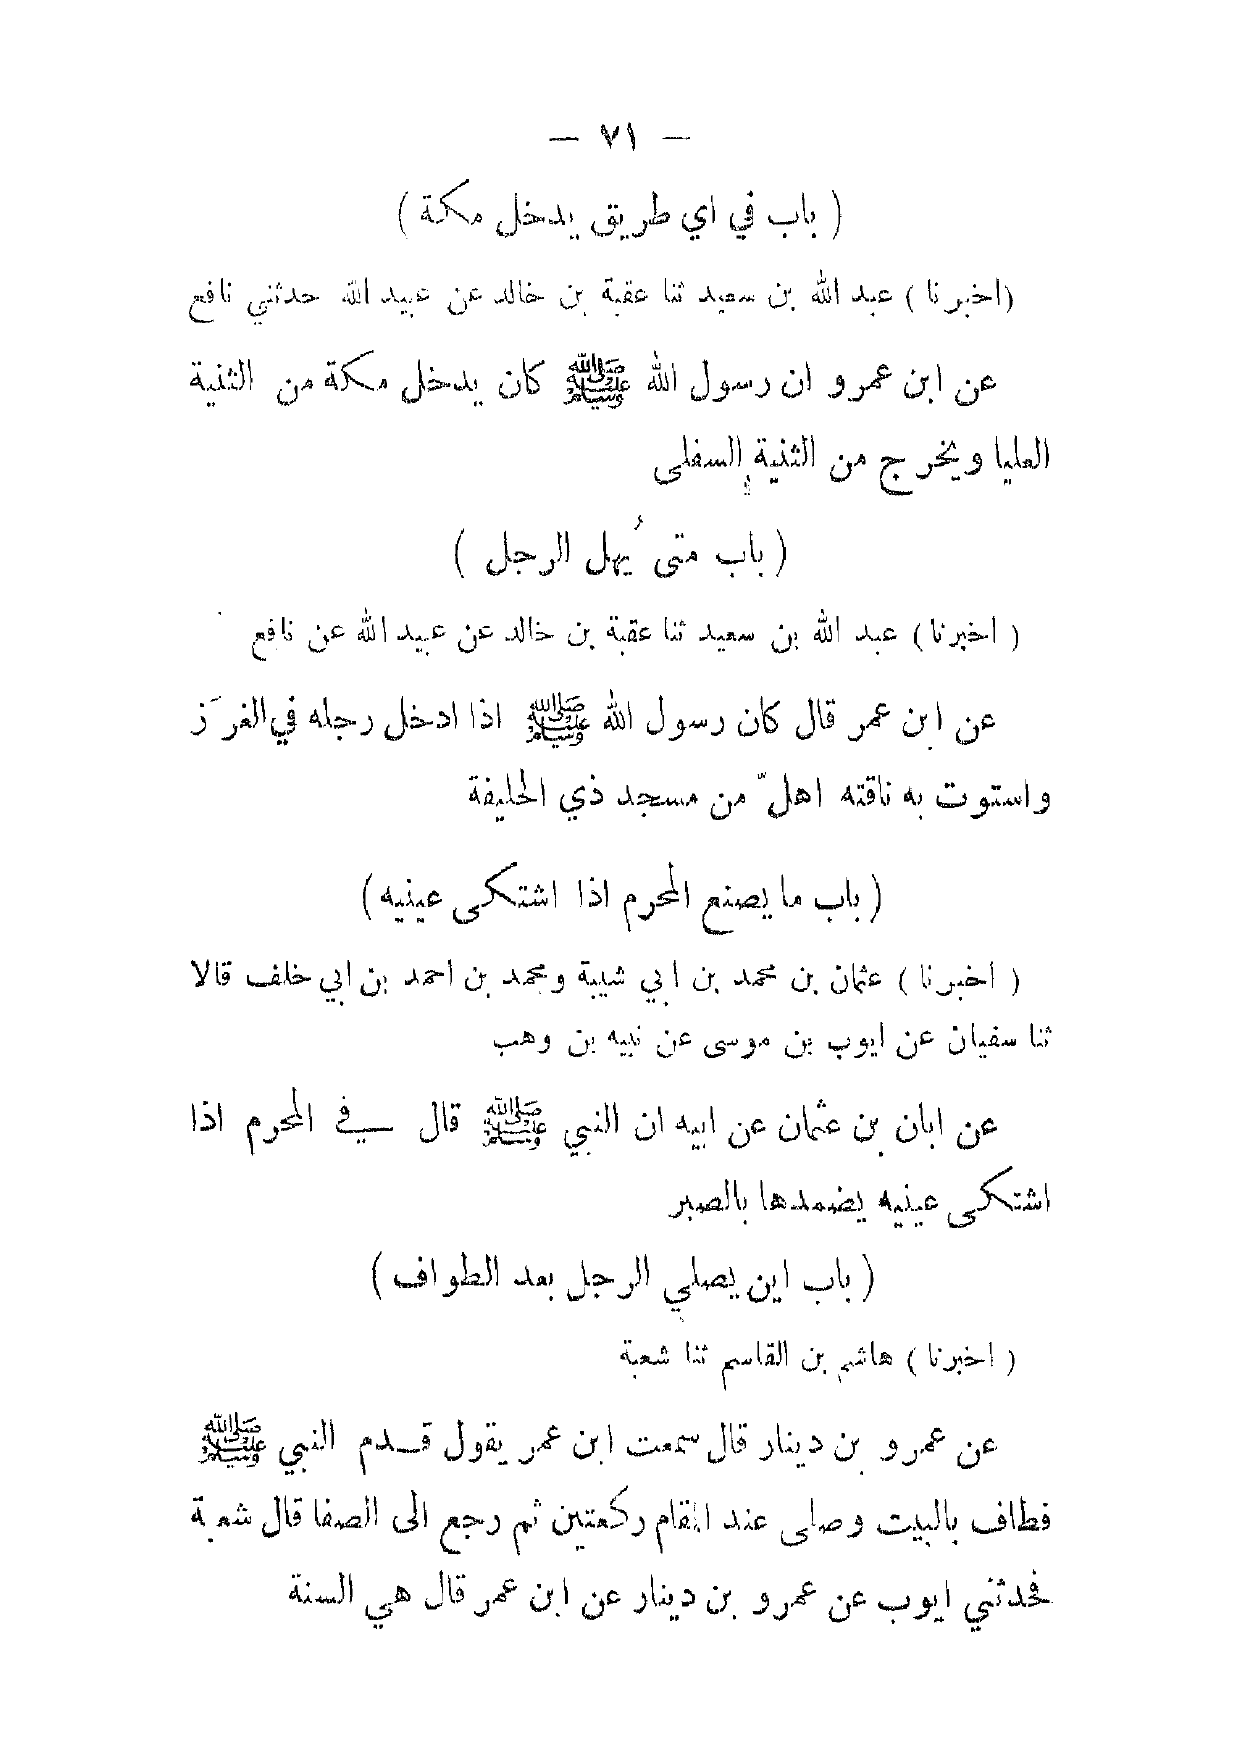 — ٧١ —
( باب في اي طريق يدخل مكة )
(اخبرنا ) عبد الله بن سعيد ثنا عقبة بن خالد عن عبيد الله حدثني نافع
عن ابن عمرو ان رسول الله ﷺ كان يدخل مكة من الثنية
العليا ويخرج من الثنية السفلى
( باب متى يُهل الرجل )
( اخبرنا ) عبد الله بن سعيد ثنا عقبة بن خالد عن عبيد الله عن نافع
عن ابن عمر قال كان رسول الله ﷺ اذا ادخل رجله في الغرَز
واستوت به ناقته اهلّ من مسجد ذي الحليفة
( باب ما يصنع المحرم اذا اشتكى عينيه )
( اخبرنا ) عثمان بن محمد بن ابي شيبة ومحمد بن احمد بن ابي خلف قالا
ثنا سفيان عن ايوب بن موسى عن نبيه بن وهب
عن ابان بن عثمان عن ابيه ان النبي ﷺ قال في المحرم اذا
اشتكى عينيه يضمدها بالصبر
( باب اين يصلي الرجل بعد الطواف )
( اخبرنا ) هاشم بن القاسم ثنا شعبة
عن عمرو بن دينار قال سمعت ابن عمر يقول قدم النبي ﷺ
فطاف بالبيت وصلى عند المقام ركعتين ثم رجع الى الصفا قال شعبة
فحدثني ايوب عن عمرو بن دينار عن ابن عمر قال هي السنة